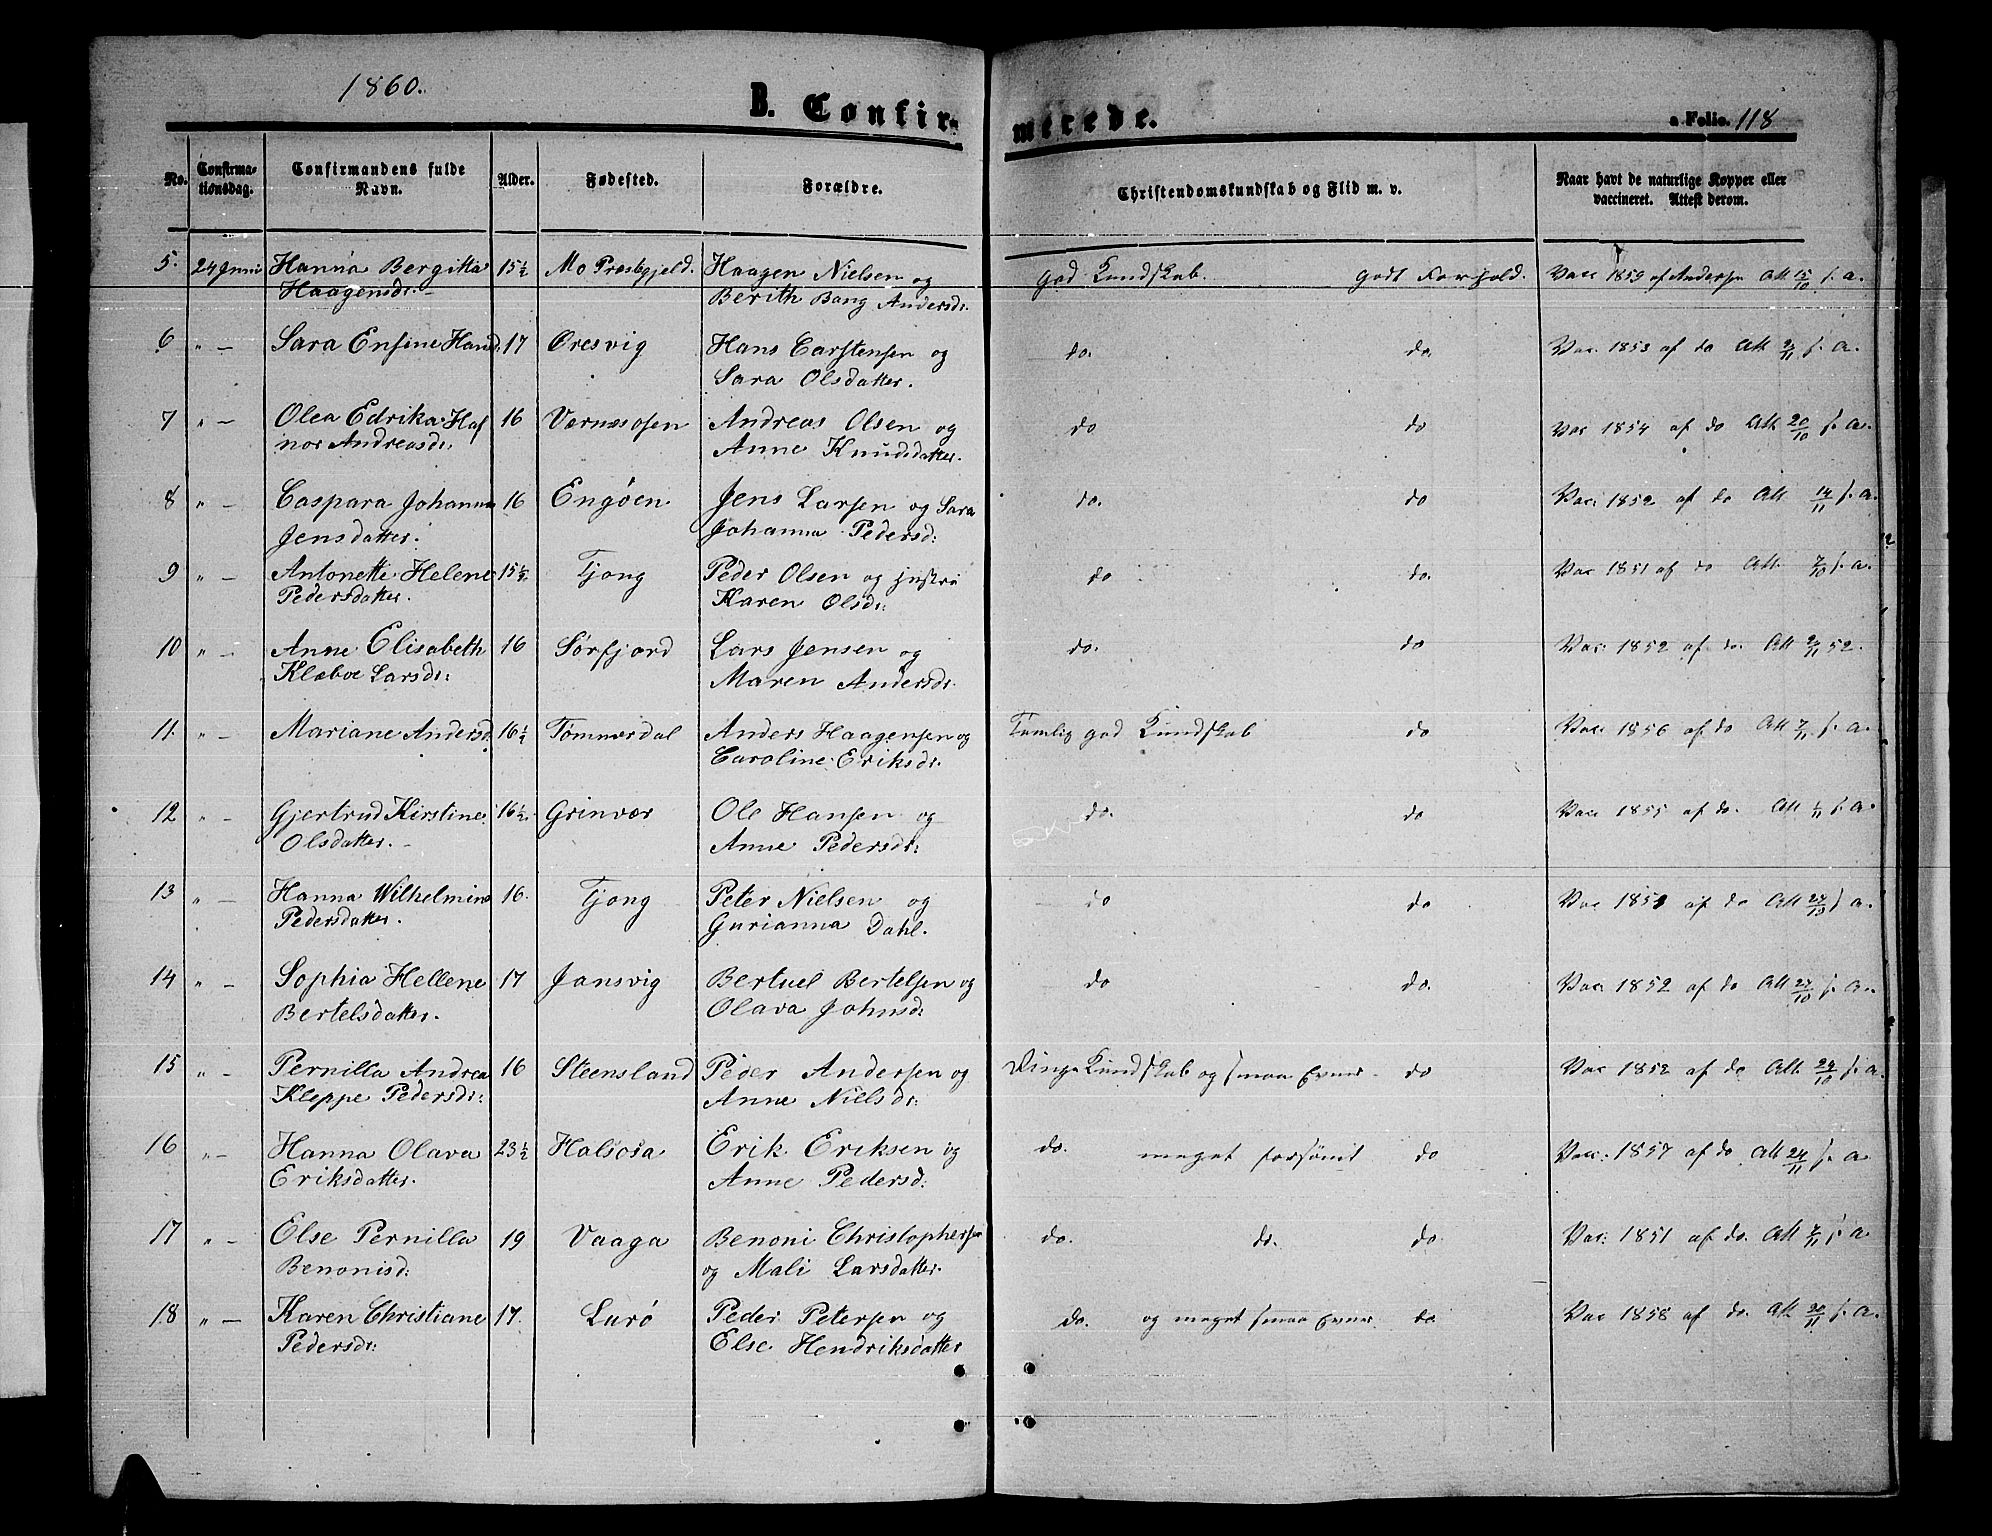 1860.
B. Confir-
merede.
a Folio. 118
No.
Confirma-
tionsdag.
Confirmandens fulde
Navn.
Alder.
Fødested.
Forældre.
Christendomskundskab og Flid m. v.
Naar havt de naturlige Kopper eller
vaccineret. Attest derom.
5. 24 Juni Hanna Bergitta 15½ Mo Præstegjeld. Haagen Nielsen og god Kundskab. godt Forhold. Vacc 1859 af Andersen Att 15/10 s. a.
Haagensdr. Berith Bang Andersdr.
6 " — Sara Ensine Hansd: 17 Oresvig Hans Carstensen og do. do. Vac. 1853 af do Att 2/11 s. a.
Sara Olsdatter.
7 " — Olea Edrika Haf 16 Værnæsosen Andreas Olsen og do do Vac 1854 af do Att 20/10 s. a.
nor Andreasdr. Anne Knudsdatter.
8 " — Caspara Johanna 16 Engøen Jens Larsen og Sara do. do Vac. 1852 af do Att 14/11 s. a.
Jensdatter. Johanna Pedersd:
9 " — Antonette Helene 15½ Tjong Peder Olsen og hustru do do. Vac 1851 af do Att. 7/10 s. a.
Pedersdatter. Karen Olsdr:
10 " — Anne Elisabeth 16 Sørfjord Lars Jensen og do. do Vac: 1852 af do. Att 2/11 52.
Klæboe Larsdr: Maren Andersdr.
11. " — Mariane Andersd. 16½ Tømmerdal Anders Haagensen og Temlig god Kundskab do Vac: 1856 af do Att 7/11 s. a.
Caroline Eriksdr.
12 " — Gjertrud Kirstine 16½. Grinvær Ole Hansen og do. do Vac 1855 af do. Att s. a.
Olsdatter. — Anne Pedersdr:
13 " — Hanna Wilhelmine 16. Tjong Peter Nielsen og do do Vac af do Att 27/10 s. a.
Pedersdatter. Gurianna Dahl.
14 " — Sophia Hellene 17 Jansvig Bertuel Bertelsen og do do. Vac 1852 af do Att 27/10 s. a.
Bertelsdatter. Olava Johnsd:
15 " — Pernilla Andrea 16 Steensland Peder Andersen og Ringe Kundskab og smaa Evner — do Vac 1852 af do Att. 24/10 s. a.
Kleppe Pedersdr: Anne Nielsdr:
16 " — Hanna Olava 23½ Halsosa Erik Eriksen og do. meget forsømt do Vac: 1857 af do Att 24/11 s. a
Eriksdatter. Anne Pedersd:
17 " — Else Pernilla 19 Vaaga Benoni Christophersen do. do. do Vac: 1851 af do. Att 7/11 s. a
Benonisd: og Mali Larsdatter.
18 " — Karen Christiane 17. Lurø Peder Petersen og do. og meget smaa Evner do Vac 1858 af do. Att 20/11 s. a.
Pedersdr: Else Hendriksdatter